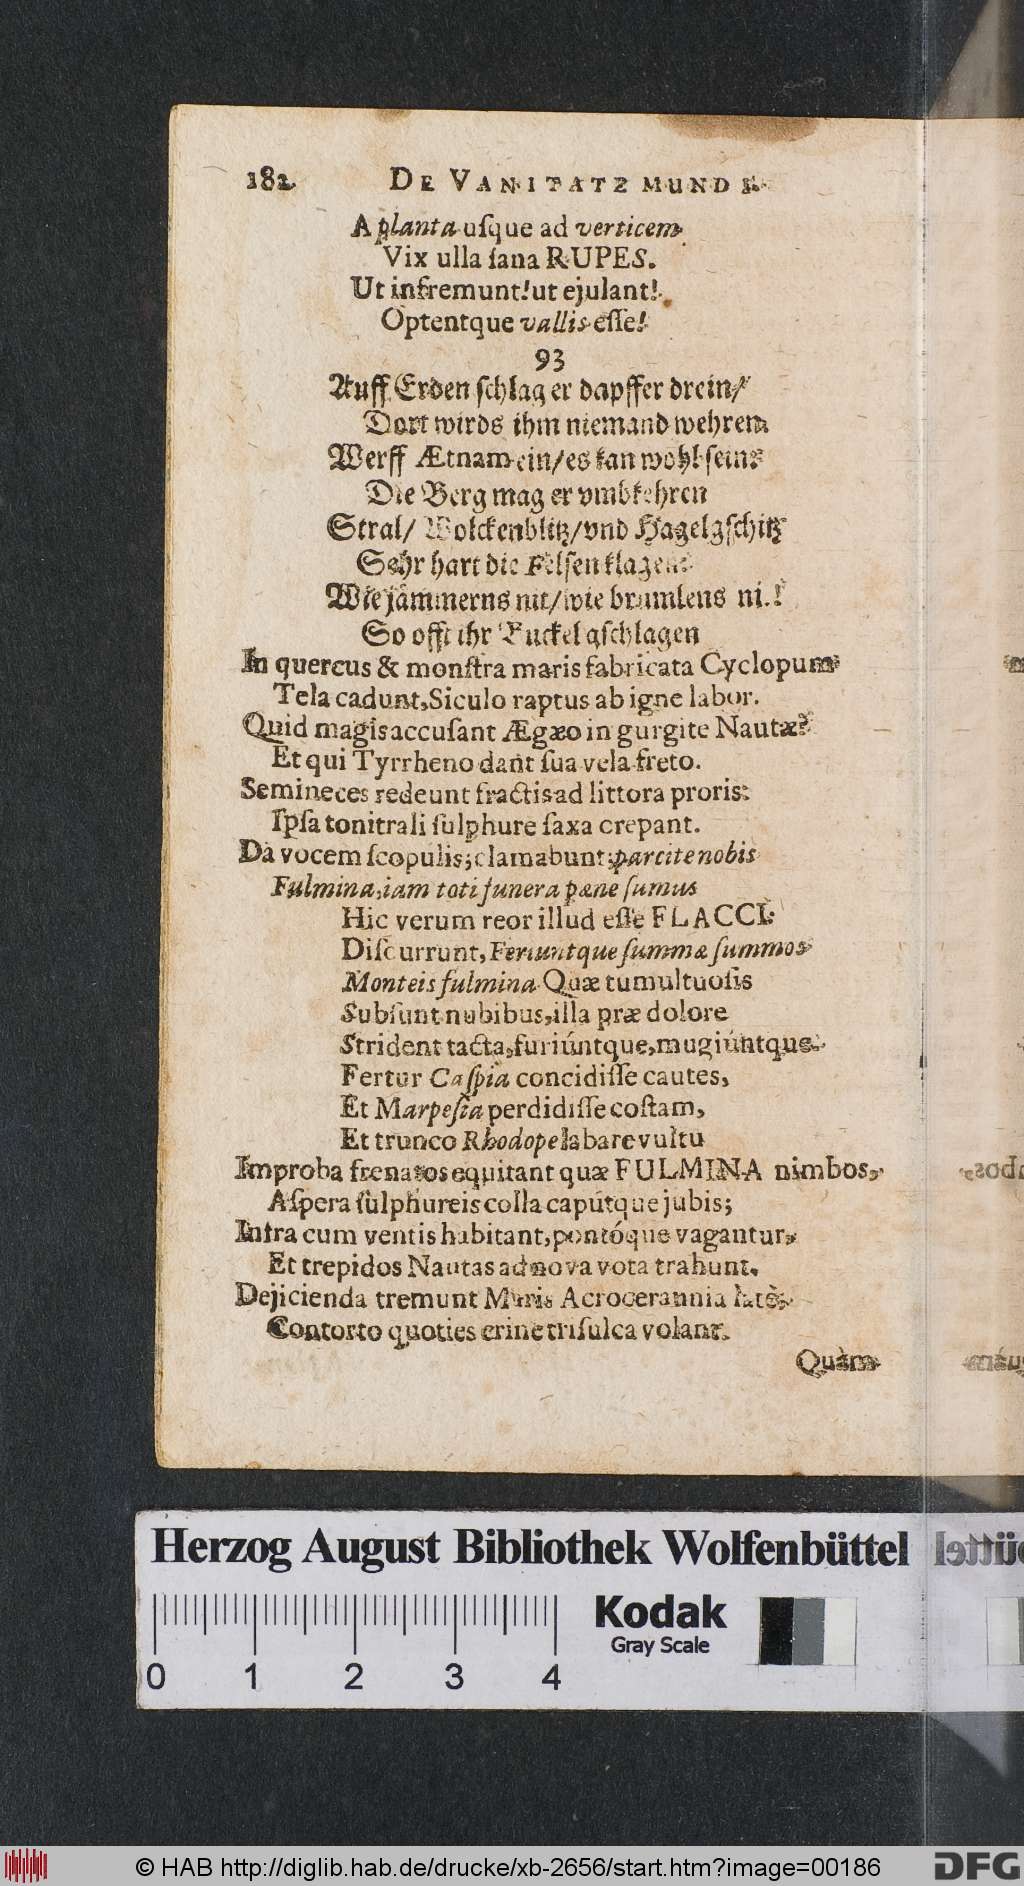 182 DE VANITATE MUNDI.
A planta usque ad verticem
Vix ulla ſana RUPES.
Ut infremunt! ut ejulant!
Optentque vallis eſſe!
93
Auff Erden ſchlag er dapffer drein/
Dort wirds ihm niemand wehren
Werff Ætnam ein/ es kan wohl ſein
Die Berg mag er vmbkehren
Stral/ Wolckenblitz/ vnd Hagelgſchitz
Sehr hart die Felſen klagen
Wie jämmerns nit/ wie brumlens nit!
So offt ihr Buckel gſchlagen
In quercus & monſtra maris fabricata Cyclopum
Tela cadunt, Siculo raptus ab igne labor.
Quid magis accuſant Ægæo in gurgite Nautæ?
Et qui Tyrrheno dant ſua vela freto.
Semineces redeunt fractis ad littora proris:
Ipſa tonitrali ſulphure ſaxa crepant.
Da vocem ſcopulis; clamabunt: parcite nobis
Fulmina, iam toti funera pæne ſumus
Hic verum reor illud eſſe FLACCI:
Diſcurrunt, Feriuntque ſummæ ſummos
Monteis fulmina Quæ tumultuoſis
Subſunt nubibus, illa præ dolore
Strident tacta, furiúntque, mugiúntque.
Fertur Caſpia concidiſſe cautes,
Et Marpeſia perdidiſſe coſtam,
Et trunco Rhodope labare vultu
Improba frenatos equitant quæ FULMINA nimbos,
Aſpera ſulphureis colla capútque jubis;
Intra cum ventis habitant, pontóque vagantur,
Et trepidos Nautas ad nova vota trahunt.
Dejicienda tremunt Muris Acroceraunia latè,
Contorto quoties crine triſulca volant.
Quàm
Herzog August Bibliothek Wolfenbüttel
0 1 2 3 4
Kodak
Gray Scale
© HAB http://diglib.hab.de/drucke/xb-2656/start.htm?image=00186
DFG